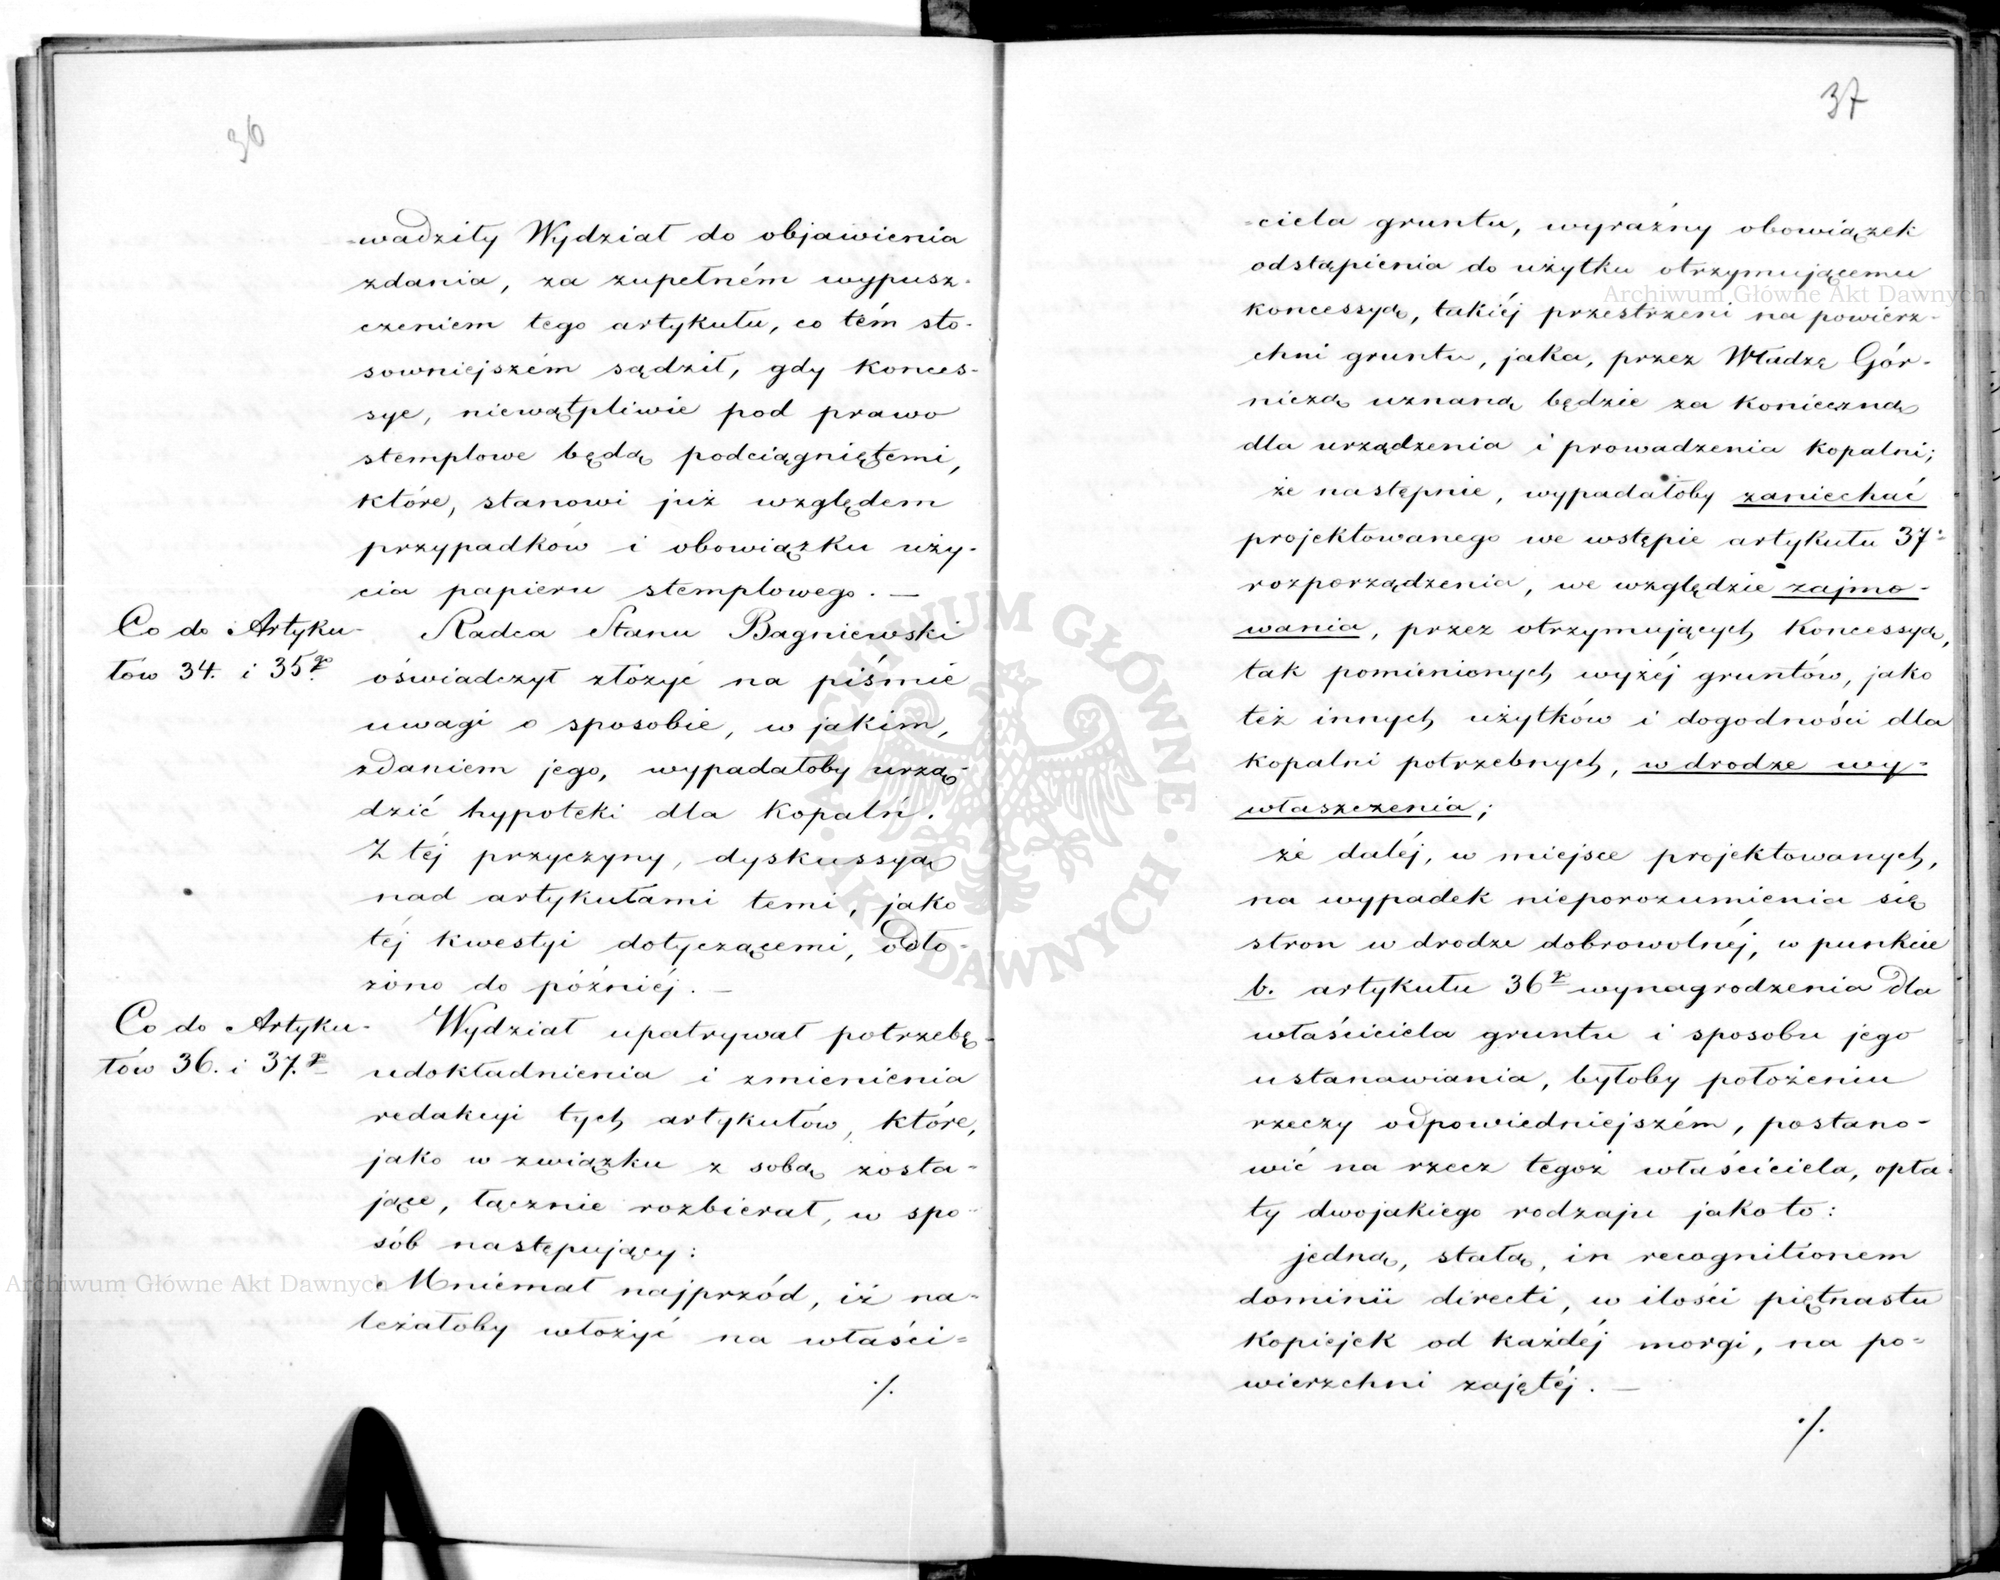 36
-wadziły Wydział do objawienia
zdania, za zupełném wypusz-
czeniem tego artykułu, co tém sto-
sowniejszém sądził, gdy konces-
sye, niewątpliwie pod prawo
stemplowe będą podciągniętemi,
które, stanowi już względem
przypadków i obowiązku uży-
cia papieru stemplowego. —
Co do Artyku-
łów 34. i 35go
Radca Stanu Bagniewski
oświadczył złożyć na piśmie
uwagi o sposobie, w jakim,
zdaniem jego, wypadałoby urzą-
dzić hypoteki dla Kopalń.
Z téj przyczyny, dyskussyą
nad artykułami temi, jako
téj kwestyi dotyczącemi, odło-
żono do późniéj. —
Co do Artyku-
łów 36. i 37.go
Wydział upatrywał potrzebę
udokładnienia i zmienienia
redakcyi tych artykułów, które,
jako w związku z sobą zosta-
jące, łącznie rozbierał, w spo-
sób następujący:
Mniemał najprzód, iż na-
leżałoby włożyć na właści=
./.
37
-ciela gruntu, wyraźny obowiązek
odstąpienia do użytku otrzymującemu
koncessyą, takiéj przestrzeni na powierz-
chni gruntu, jaka, przez Władzę Gór-
niczą uznaną będzie za konieczną
dla urządzenia i prowadzenia kopalni;
że następnie, wypadałoby zaniechać
projektowanego we wstępie artykułu 37.
rozporządzenia, we względzie zajmo-
wania, przez otrzymujących Koncessyą,
tak pomienionych wyżéj gruntów, jako
też innych użytków i dogodności dla
kopalni potrzebnych, w drodze wy-
właszczenia;
że daléj, w miejsce projektowanych,
na wypadek nieporozumienia się
stron w drodze dobrowolnéj, w punkcie
b. artykułu 36go wynagrodzenia dla
właściciela gruntu i sposobu jego
ustanawiania, byłoby położeniu
rzeczy odpowiedniejszém, postano-
wić na rzecz tegoż właściciela, opła-
ty dwojakiego rodzaju jako to:
jedną, stałą, in recognitionem
dominii directi, w ilości piętnastu
Kopiejek od każdéj morgi, na po=
wierzchni zajętéj. —
./.
Archiwum Główne Akt Dawnych
Archiwum Główne Akt Dawnych
ARCHIWUM GŁÓWNE · AKT DAWNYCH ·